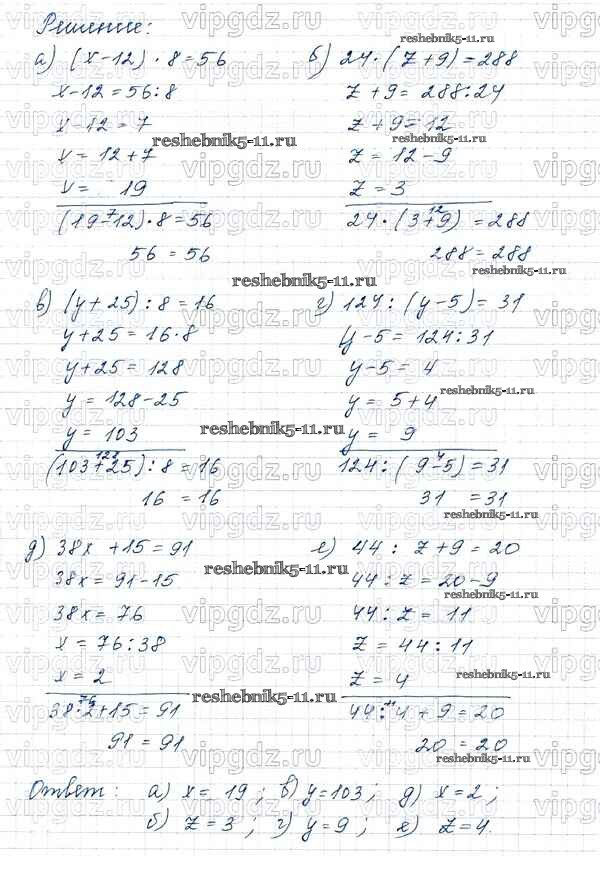 Решение:
а) (x-12) · 8 = 56
x-12 = 56:8
x-12 = 7
x = 12+7
x = 19
(19-12)·8 = 56
7
56 = 56
б) 24·(z+9) = 288
z+9 = 288:24
z+9 = 12
z = 12-9
z = 3
24·(3+9) = 288
12
288 = 288
в) (y+25):8 = 16
y+25 = 16·8
y+25 = 128
y = 128-25
y = 103
(103+25):8 = 16
128
16 = 16
г) 124:(y-5) = 31
y-5 = 124:31
y-5 = 4
y = 5+4
y = 9
124:(9-5) = 31
4
31 = 31
д) 38x +15 = 91
38x = 91-15
38x = 76
x = 76:38
x = 2
38·2+15 = 91
76
91 = 91
е) 44 : z+9 = 20
44:z = 20-9
44:z = 11
z = 44:11
z = 4
44:4+9 = 20
11
20 = 20
Ответ: а) x = 19; в) y=103; д) x=2;
б) z=3; г) y=9; е) z=4.
reshebnik5-11.ru
vipgdz.ru